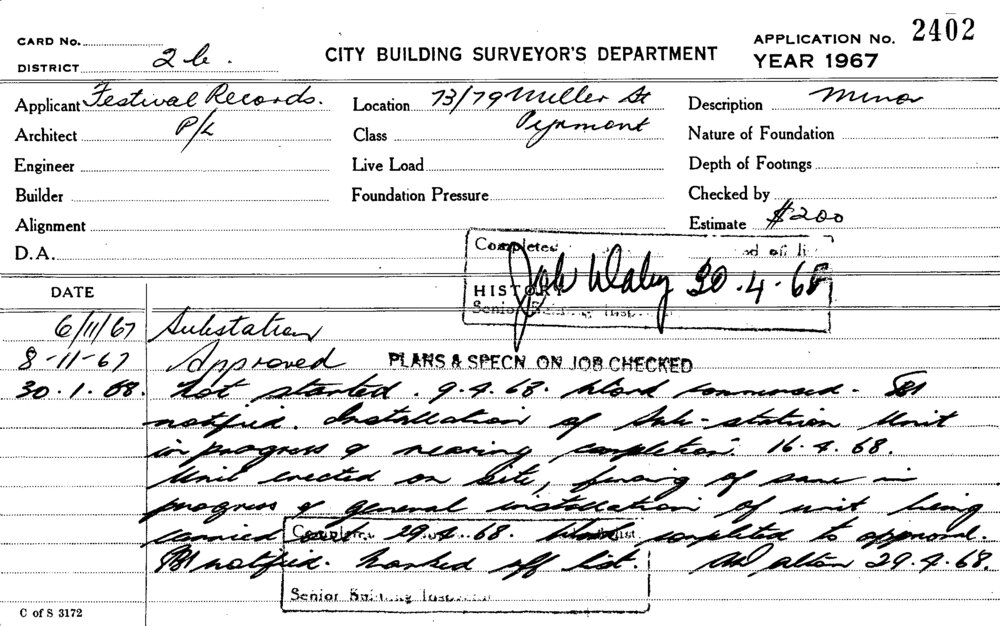 CARD No.
DISTRICT 2b.
CITY BUILDING SURVEYOR'S DEPARTMENT
APPLICATION No. 2402
YEAR 1967
Applicant Festival Records.
Location 73/79 Miller St
Description Minor
Architect P/L
Class Pyrmont
Nature of Foundation
Engineer
Live Load
Depth of Footings
Builder
Foundation Pressure
Checked by
Alignment
Estimate $200
D.A.
Completed
HISTORY 30.4.68
Senior Building
DATE
6/11/67 Substation
8-11-67 Approved PLANS & SPECN ON JOB CHECKED
30.1.68. Not started. 9.4.68. Work commenced. SBI
notified. Installation of Sub-station Unit
in progress & nearing completion. 16.4.68.
Unit erected on site, fencing of same in
progress & general installation of unit being
carried 29.4.68. Work completed to approval.
SBI notified. Marked off list. 29.4.68.
Senior Building Inspector
C of S 3172